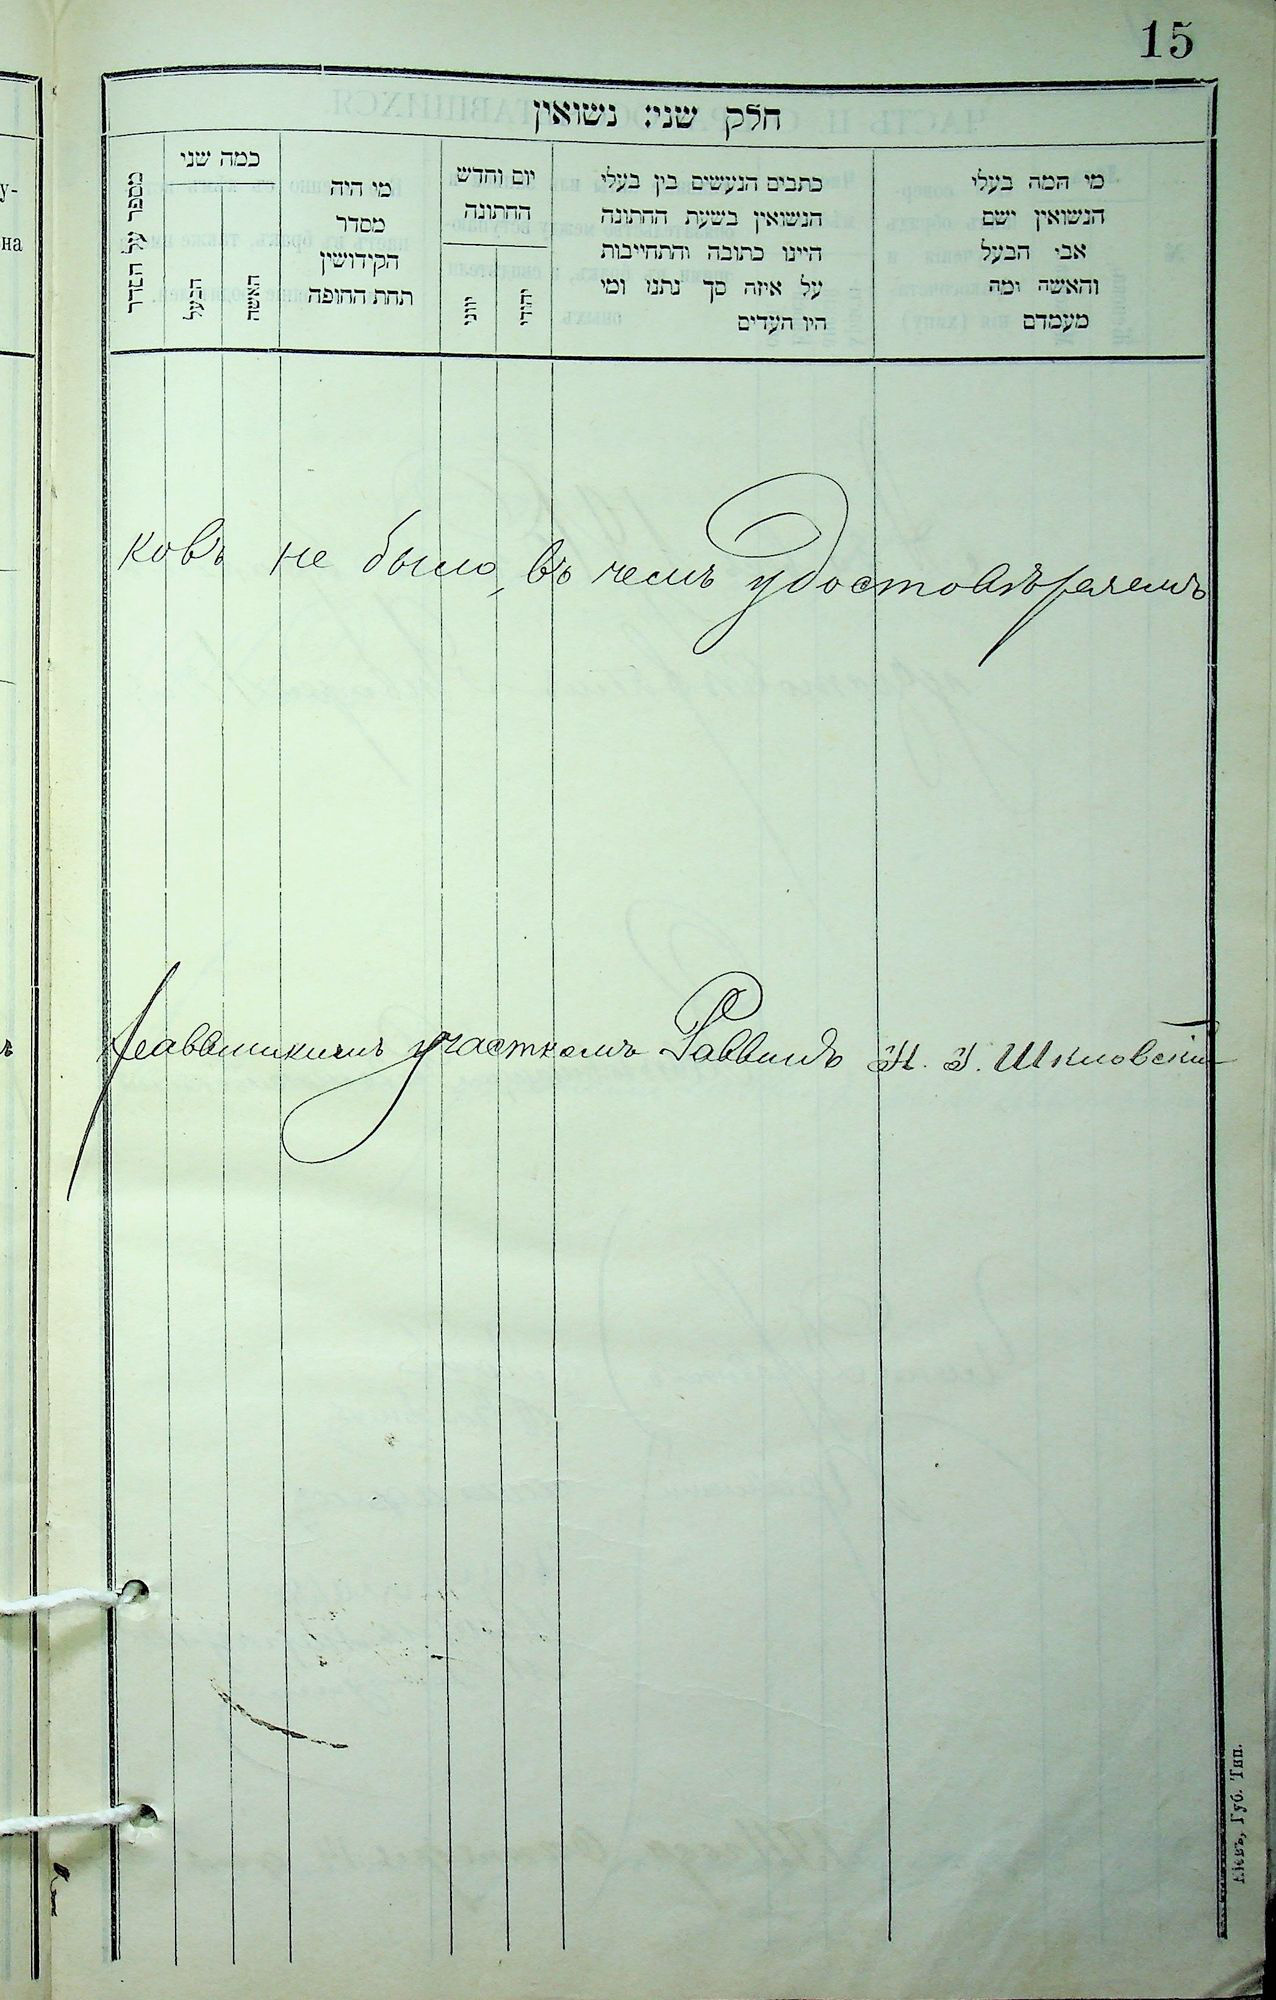 15
חלק שני: נשואין
מספר על הסדר
כמה שני
הבעל
האשה
מי היה
מסדר
הקידושין
תחת החופה
יום וחדש
החתונה
יוני
יהודי
כתבים הנעשים בין בעלי
הנשואין בשעת החתונה
היינו כתובה והתחייבות
על איזה סך נתנו ומי
היו העדים
מי המה בעלי
הנשואין ושם
אבי הבעל
והאשה ומה
מעמדם
у-
на
ковъ не было, въ чемъ удостовѣряемъ
участкомъ Раввинъ И. І. Шкловскій
Кіевъ, Губ. Тип.